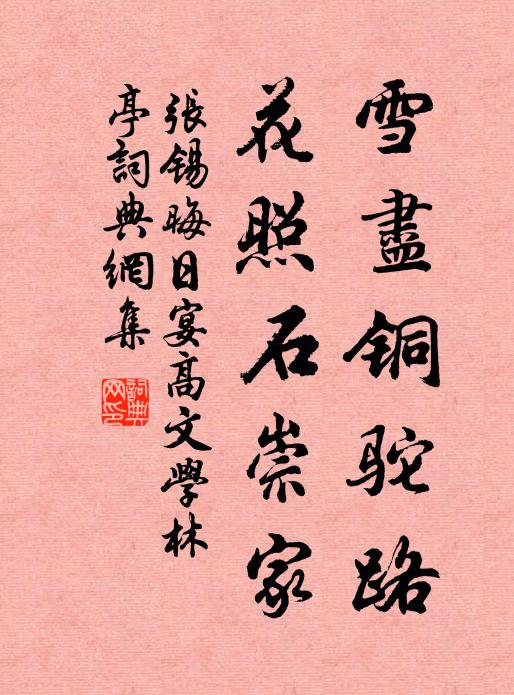 雪盡铜駝路
花照石崇家
張锡晦日宴高文學林
亭詞典網集
詞典
网印